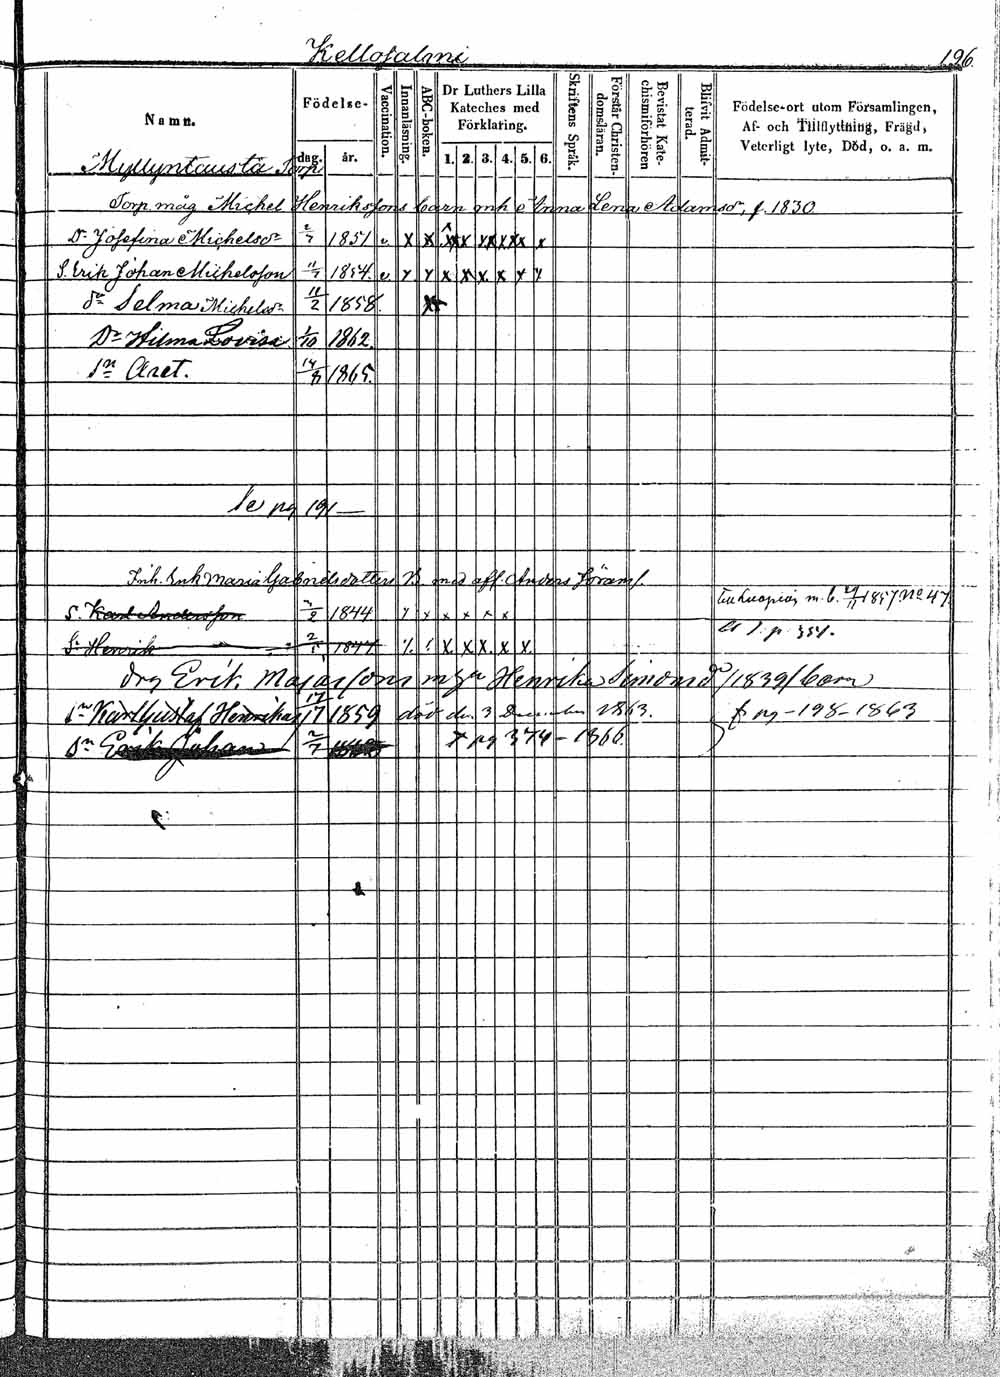 Kellosalmi 196
Namn. Födelse- dag. år. Vaccination. Innanläsning. ABC-boken. Dr Luthers Lilla Kateches med Förklaring. 1. 2. 3. 4. 5. 6. Skriftens Språk. Förstår Christendomsläran. Bevistat Katechismiförhören Blifvit Admitterad. Födelse-ort utom Församlingen, Af- och Tillflyttning, Frägd, Veterligt lyte, Död, o. a. m.
Myllyntaustä Torp
Torp. måg Michel Henrikssons barn mh Anna Lena Adamsdr, f. 1830
Dr Josefina Michelsdr 2/7 1851 v. x x x x x x x x
S. Erik Johan Michelsson 11/7 1854 v x x x x x x x x
dr Selma Michelsdr 11/2 1858. x
Dr Hilma Lovisa 1/10 1862
sn Axet. 14/8 1865.
se pg 191 —
Inh. Enk Maria Gabrielsdotters B. med aff. Anders
S. Karl Andersson 1844 x x x x x m. b. 1857 No 47
S. Henrik 1847 x x x x x
drg Erik. Henrika Simonsdr /1839/ barn
sn Karl Gustaf Henrik 17/17 1859 död d. 3 December 1863. f pg - 198 - 1863
sn Erik Johan 2/7 pg 374 - 1866